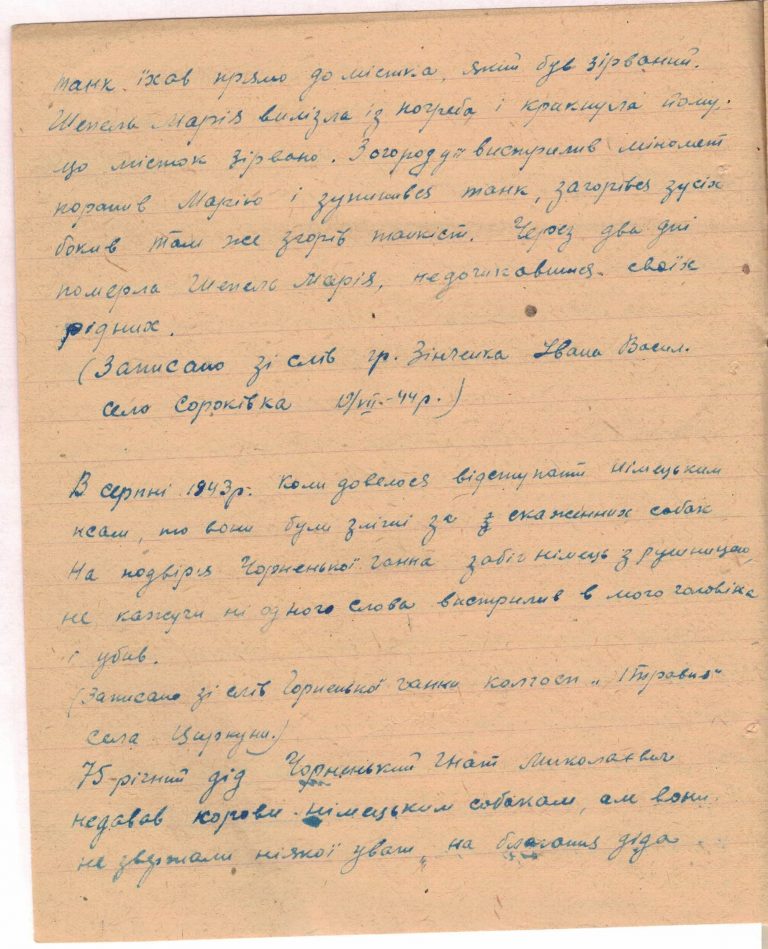 танк їхав прямо до містка, який був зірваний.
Шепель Марія вилізла із погреба і крикнула йому,
що місток зірвано. З огорода вистрилив міномет
поранив Марію і зупинився танк, загорівся зусіх
боків там же згорів танкіст. Через два дні
померла Шепель Марія, недочикавшися своїх
рідних.
(Записано зі слів гр. Зінченка Івана Васил.
село Сороківка 12/VII-44р.)
В серпні 1943р. коли довелося відступати німецьким
псам, то вони були зліші за скаженних собак
На подвіря Чорненької Ганна забіг німець з рушницею,
не кажучи ні одного слова вистрилив в мого чоловіка
і убив.
(Записано зі слів Чорненької Ганни колгосп „1 травня"
села Циркуни.)
75-річний дід Чорненький Гнат Миколаєвич
недавав корови німецьким собакам, але вони
не звертали ніякої уваги на благання діда